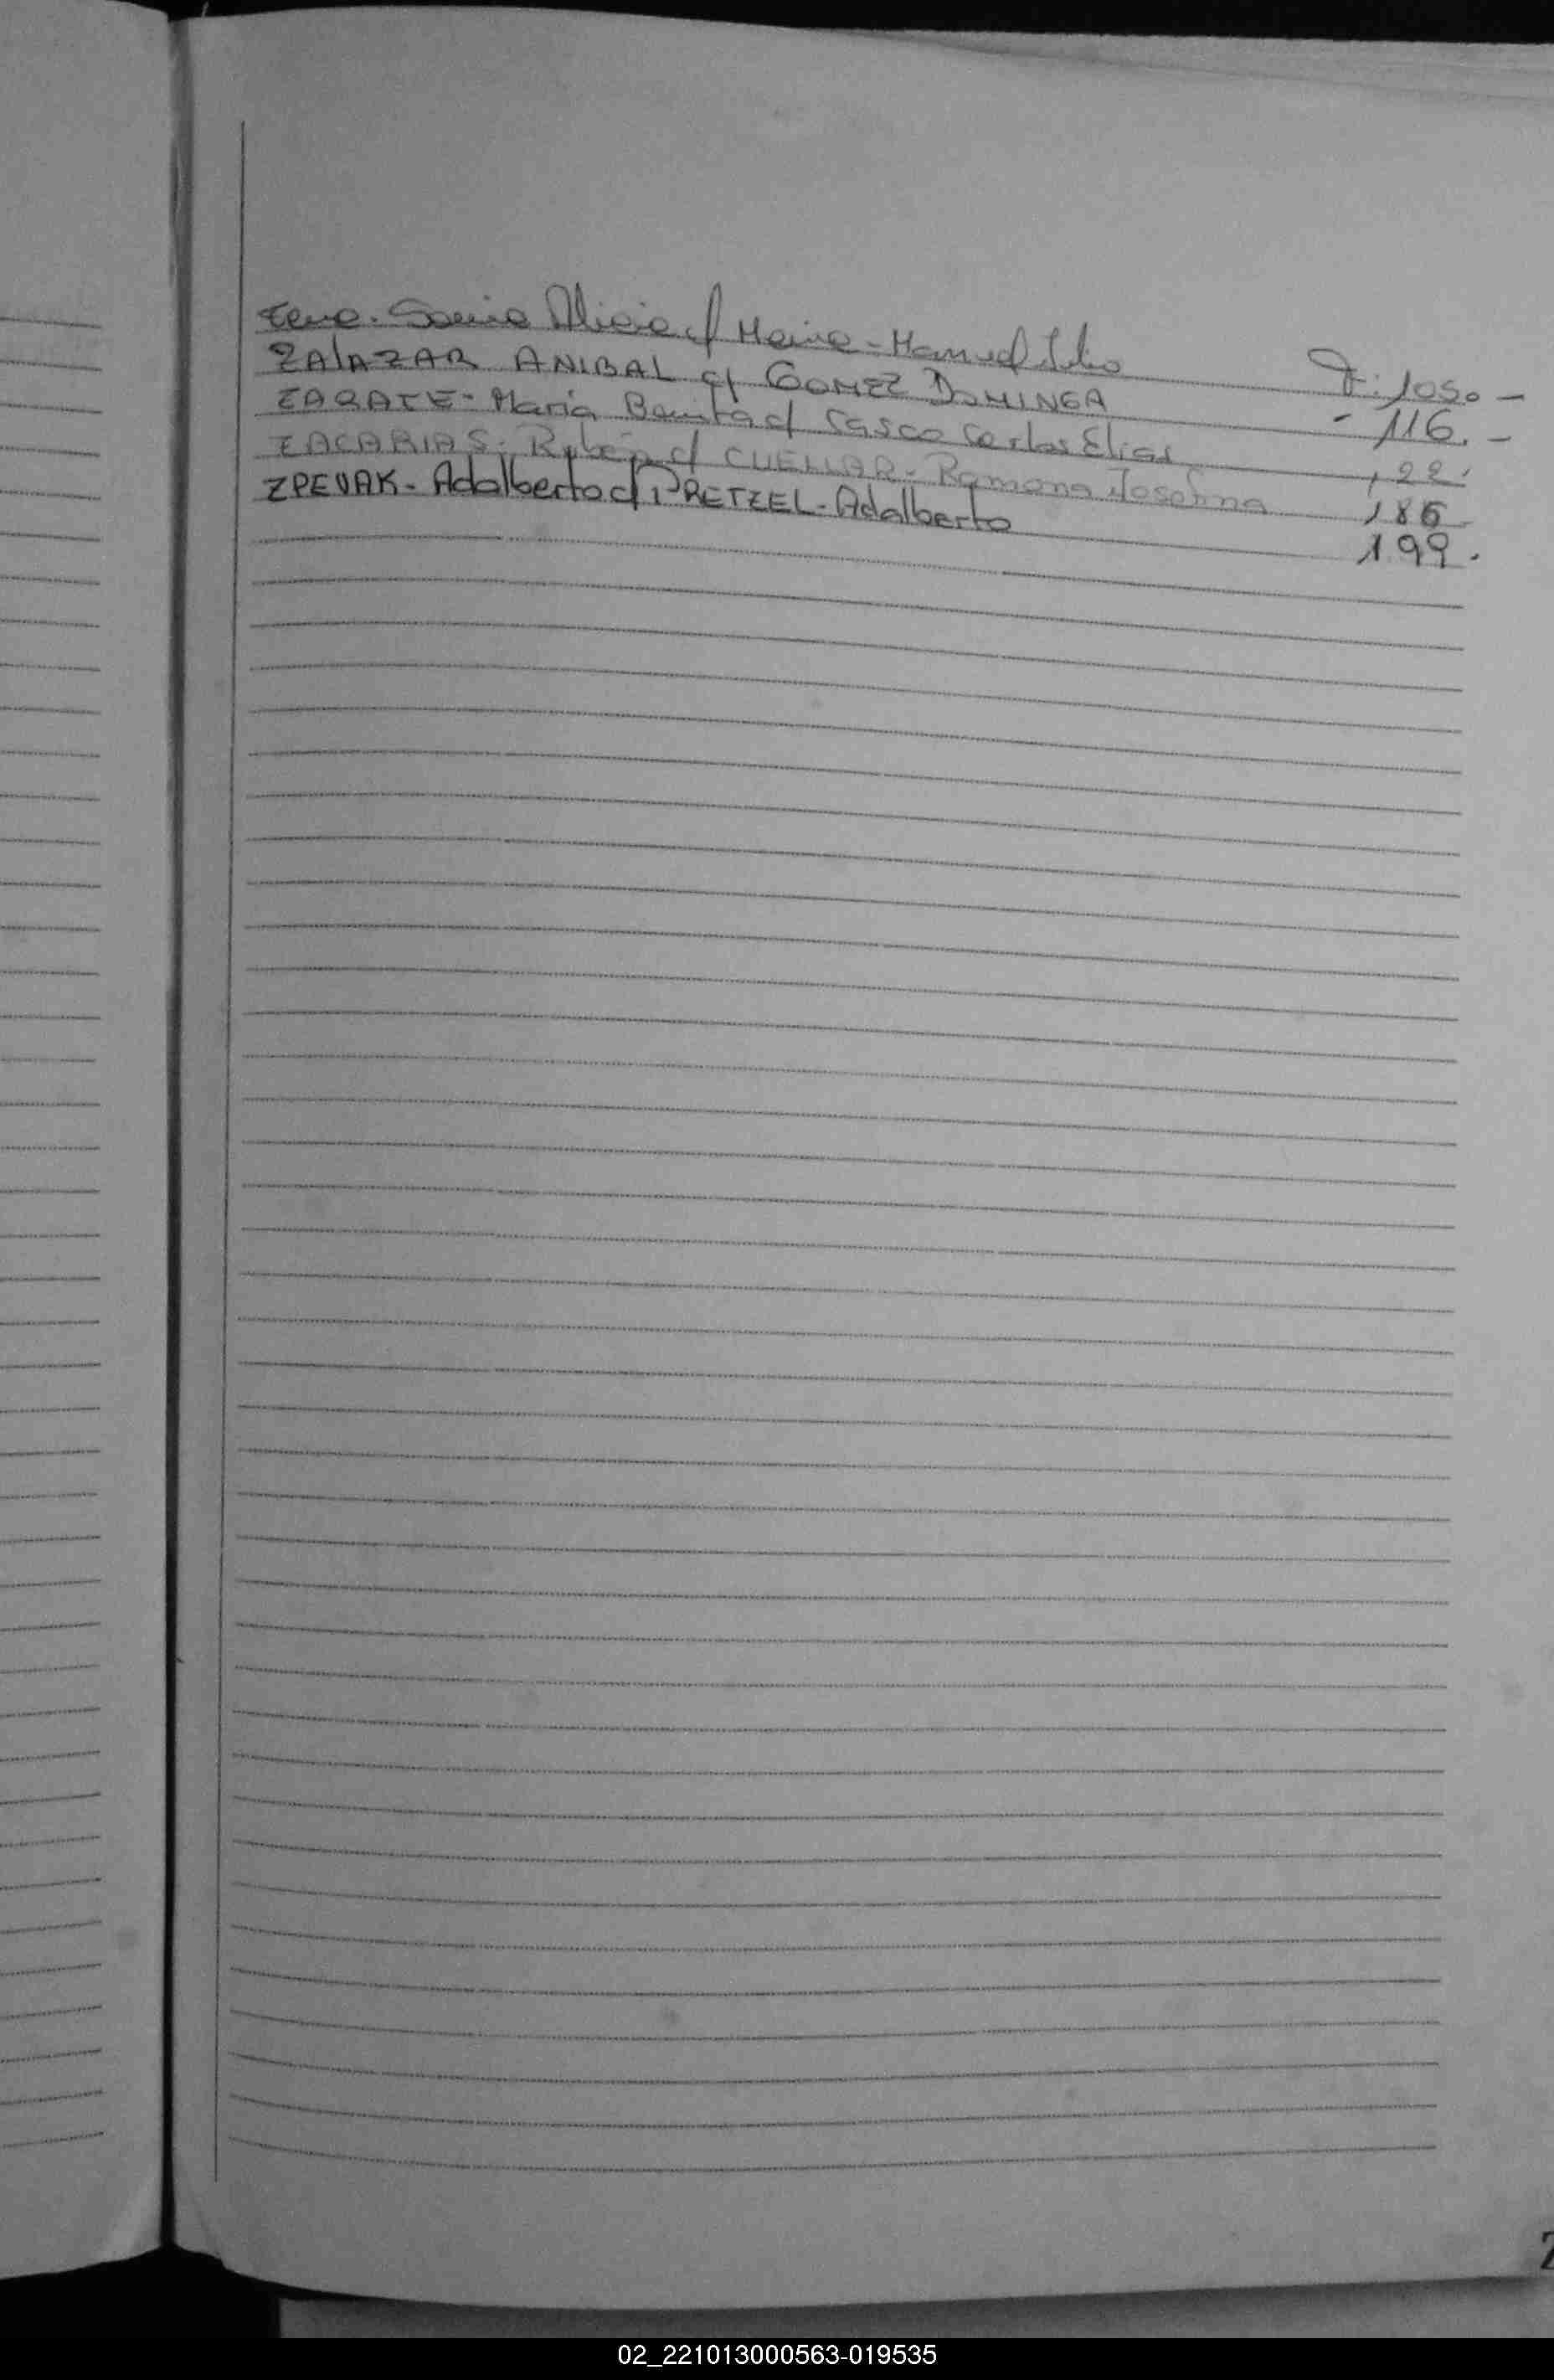 Sonia Alicia c/ Manuel Julio F: 1050 -
ZAlAZAR ANIBAL c/ GOMEZ DOMINGA - 116. -
ZARATE - María Benita c/ Casco Carlos Elias , 22.
ZACARIAS. Rubén c/ CUELLAR - Ramona Josefina 186
ZPEVAK - Adalberto c/ PRETZEL - Adalberto 199.
02_221013000563-019535